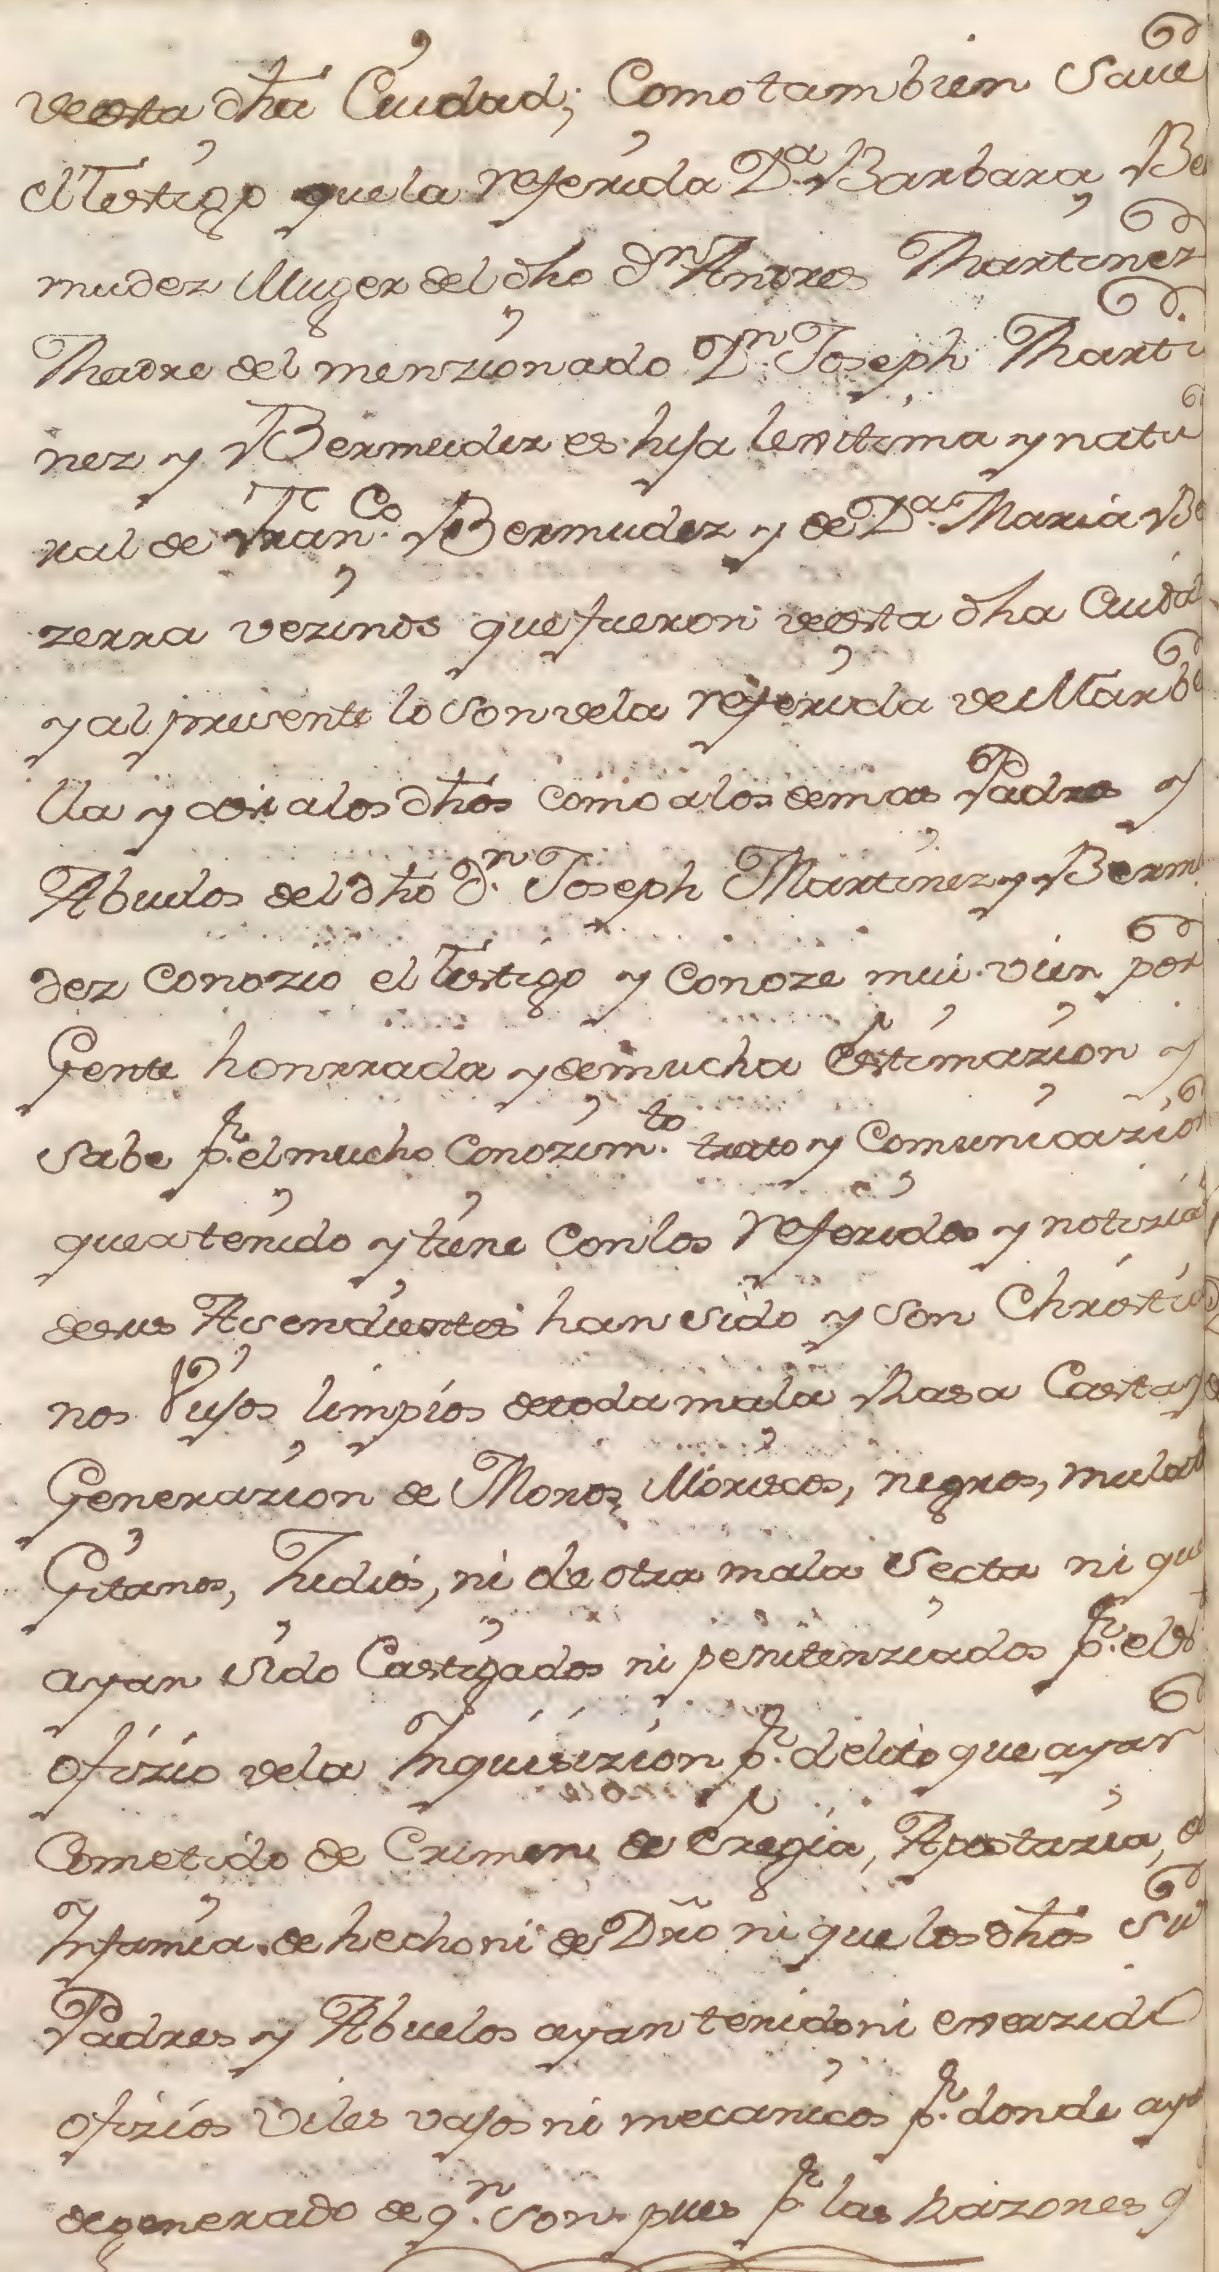 de esta dha Ciudad; Como tambien Save
el Testigo que la referida D.ª Barbara Be
mudez Muger del dho d.n Andres Martinez
Madre del menzionado D.n Joseph Marti
nez y Bermudez es hija lexitima y natu
ral de Fran.co Bermudez y de D.ª Maria Be
zerra vezinos que fueron de esta dha Ciuda
y al presente lo son de la referida de Marbe
lla y asi a los dhos como a los demas Padres y
Abuelos del dho d.n Joseph Martinez y Berm
dez Conozio el Testigo y Conoze mui vien por
Gente honrrada y de mucha Estimazion y
Sabe p.r el mucho Conozim.to trato y Comunicazion
que a tenido y tiene Con los referidos y notizia
de sus Asendientes han sido y son Christia
nos Viejos limpios de toda mala Rasa Casta y
Generazion de Moros, Moriscos, negros, mulat
Gitanos, Judios, ni de otra mala Secta ni que
ayan sido Castigados ni penitenziados p.r el st
ofizio de la Inquisizion p.r delito que ayan
Cometido de Crimen de eregia, Apostazia, o
Infamia de hecho ni de Dro ni que los dhos Su
Padres y Abuelos ayan tenido ni exerzido
ofizios Viles vajos ni mecanicos p.r donde aya
degenerado de q.n son pues p.r las Razones q